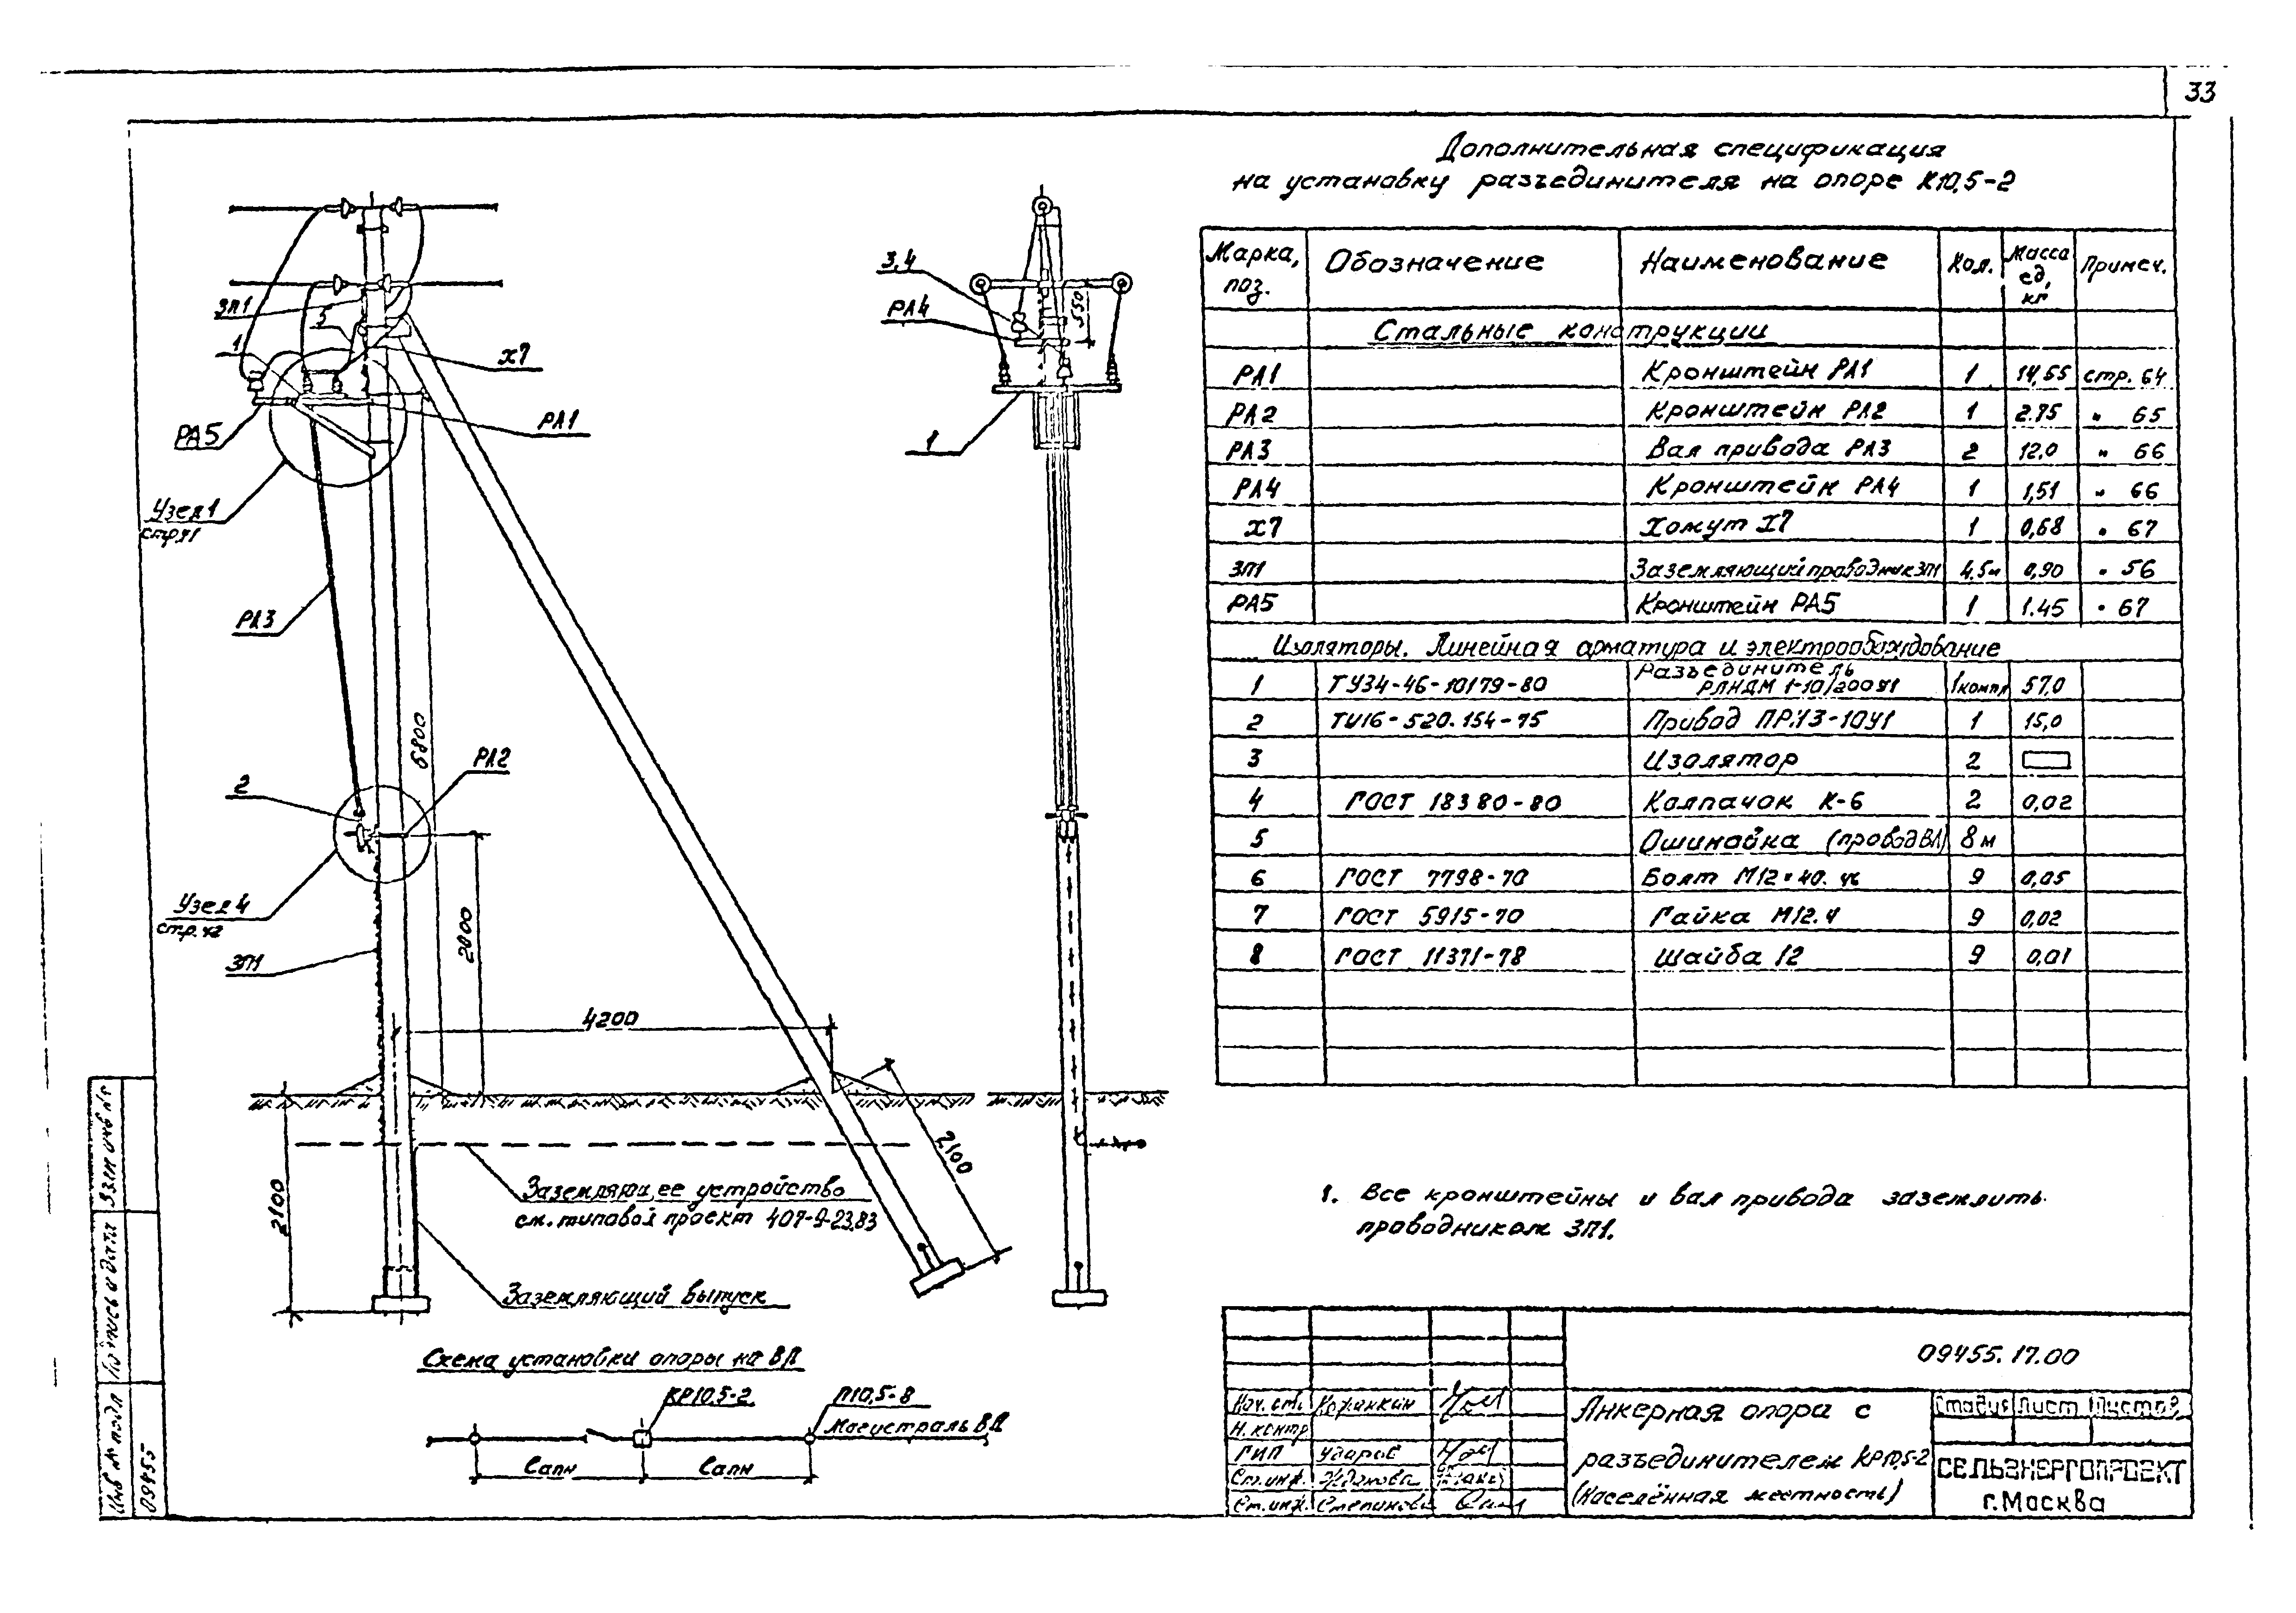 33
Дополнительная спецификация
на установку разъединителя на опоре К10,5-2
Марка, поз. Обозначение Наименование Кол. Масса ед, кг Примеч.
Стальные конструкции
РА1 Кронштейн РА1 1 14,55 стр. 64
РА2 Кронштейн РА2 1 2.75 " 65
РА3 Вал привода РА3 2 12,0 " 66
РА4 Кронштейн РА4 1 1,51 " 66
Х7 Хомут Х7 1 0,68 " 67
ЗП1 Заземляющий проводник ЗП1 4,5м 0,90 " 56
РА5 Кронштейн РА5 1 1.45 " 67
Изоляторы. Линейная арматура и электрооборудование
1 ТУ34-46-10179-80 Разъединитель РЛНДМ 1-10/200У1 1компл 57,0
2 ТУ16-520.154-75 Привод ПРНЗ-10У1 1 15,0
3 Изолятор 2
4 ГОСТ 18380-80 Колпачок К-6 2 0,02
5 Ошиновка (провод ВЛ) 8м
6 ГОСТ 7798-70 Болт М12×40.46 9 0,05
7 ГОСТ 5915-70 Гайка М12.4 9 0,02
8 ГОСТ 11371-78 Шайба 12 9 0,01
ЗП1
5
1
Х7
РА5
РА1
Узел 1
стр.41
РА3
6800
2
РА2
Узел 4
стр.42
2800
ЗП1
4200
2100
2100
3,4
РА4
550
1
Заземляющее устройство
см. типовой проект 407-9-23.83
Заземляющий выпуск
Схема установки опоры на ВЛ
КР10,5-2
П10,5-8
Магистраль ВЛ
Lапн Lапн
1. Все кронштейны и вал привода заземлить
проводником ЗП1.
09455.17.00
Нач. отд.
Н. контр
ГИП Ударов
Ст. инж. Жданова
Ст. инж. Степинова
Анкерная опора с
разъединителем КР10,5-2
(Населённая местность)
Стадия Лист Листов
СЕЛЬЭНЕРГОПРОЕКТ
г. Москва
Взам инв №
Подпись и дата
Инв № подл
09455